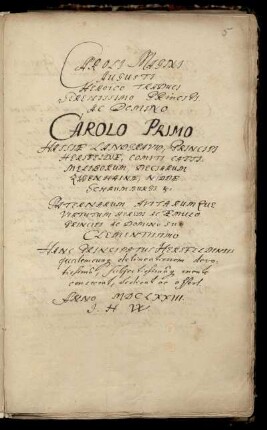 5
CAROLI MAGNI
AUGUSTI
HEROICO
SERENISSIMO PRINCIPI
AC DOMINO
CAROLO PRIMO
HASSIÆ LANDGRAVIO, PRINCIPI
HERSFELDIÆ, COMITI CATTI
MELIBOCORUM, DECIÆ
ZIEGENHAINÆ, NIDDÆ
SCHAUMBURGI &c.
PATERNARUM AVITARUMQUE
VIRTUTUM HÆREDI AC ÆMULO
PRINCIPI AC DOMINO SUO
CLEMENTISSIMO
HANC PRINCIPATUS HERSFELDENSIS
qualemcunq delineationem
consecrat, dedicat ac offert
ANNO MDCLXXIII